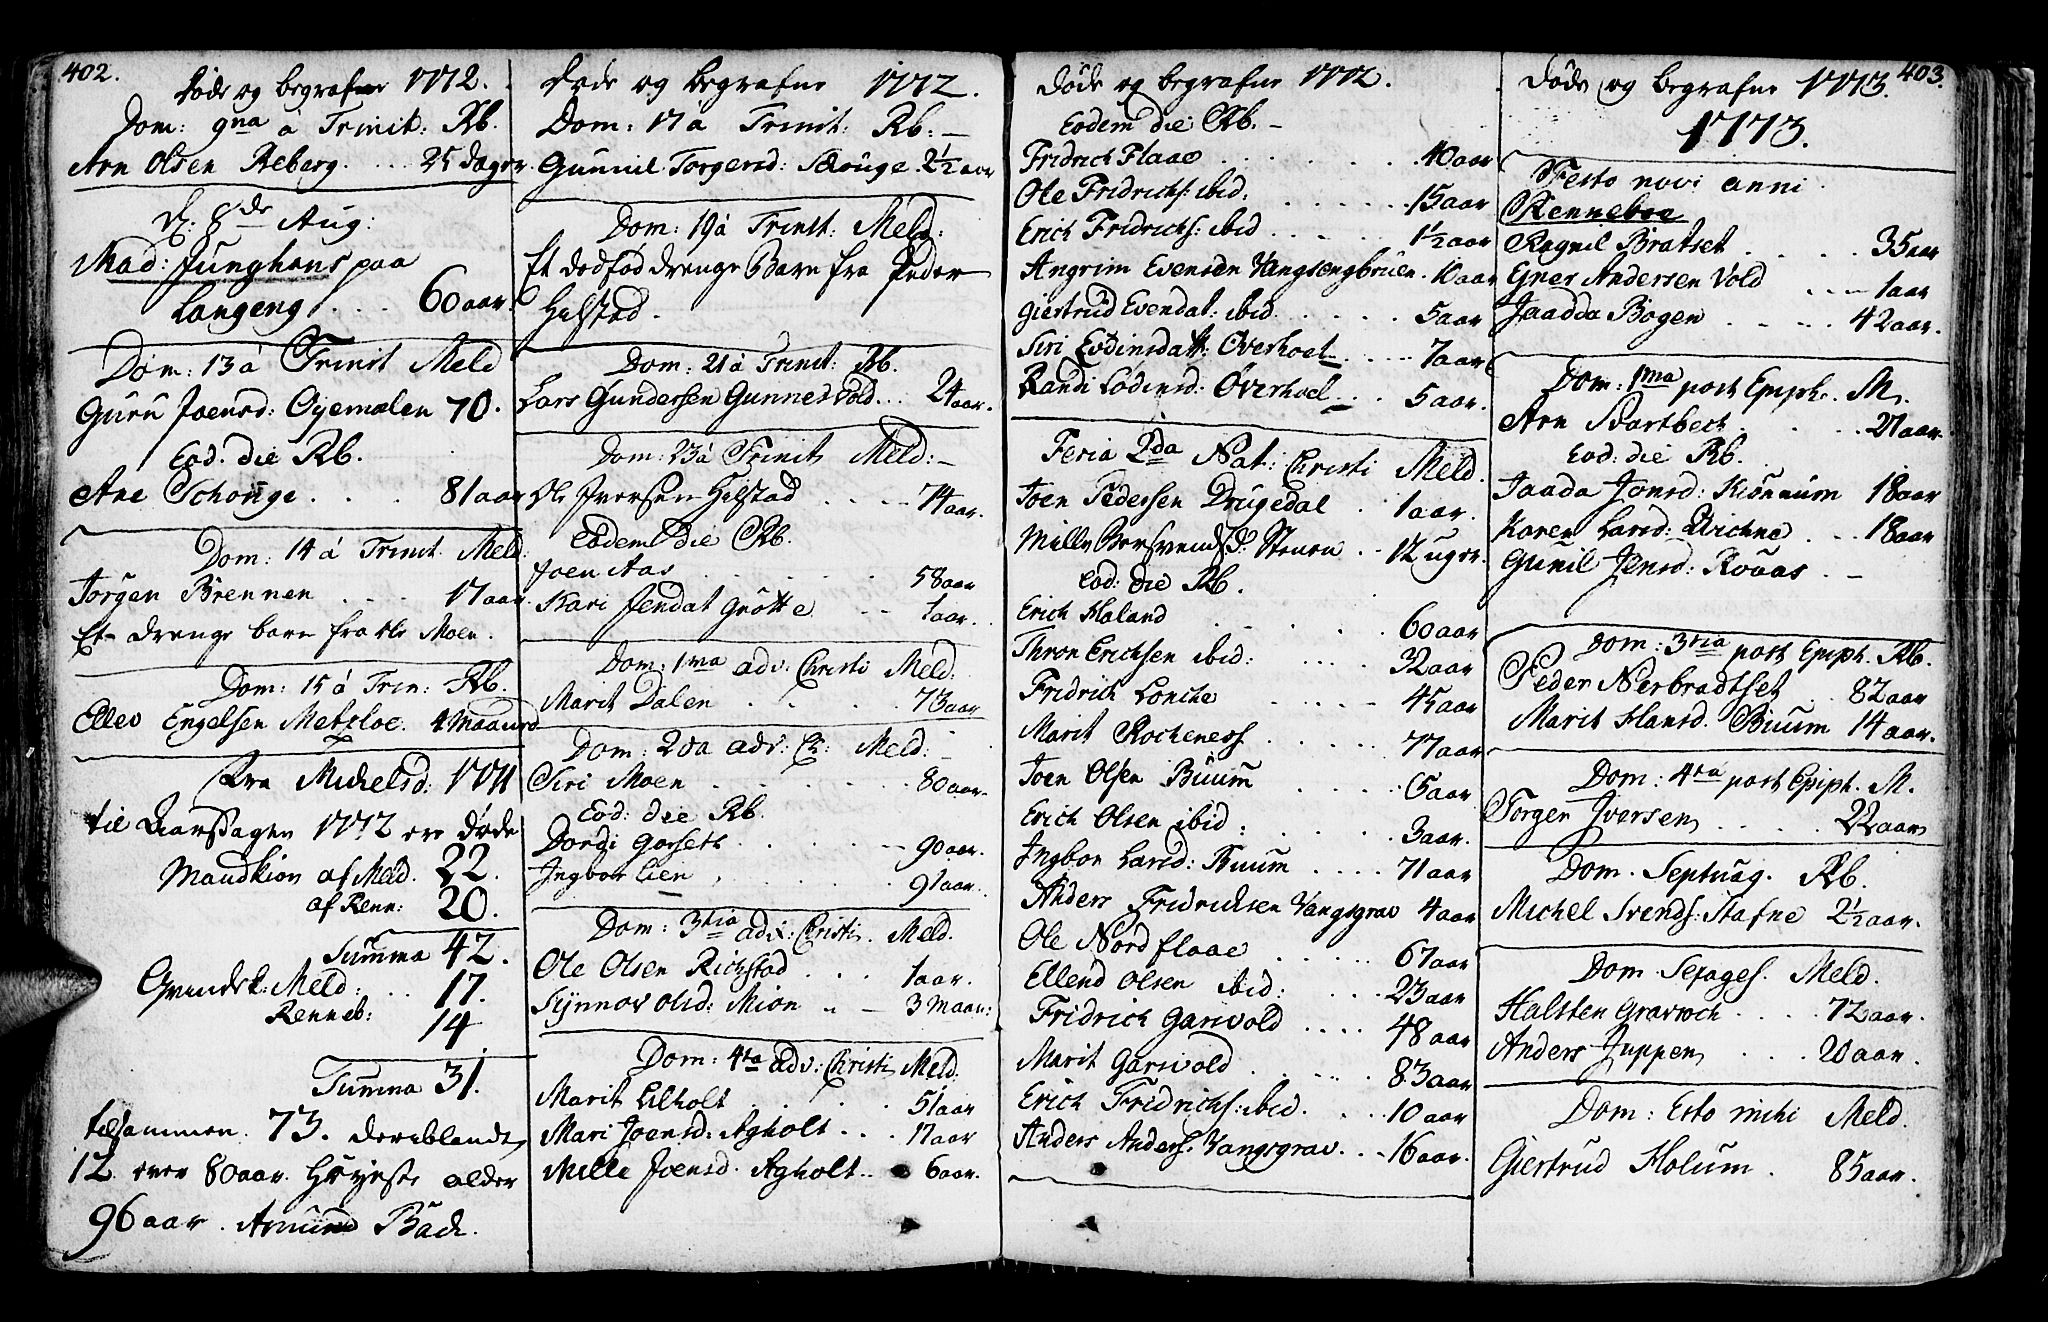 402.
Døde og begrafne 1772.
Dom: 9na à Trinit: Rb.
Arn Olsen Reberg. . . . 25 dager.
D: 8de Aug:
Mad: Junghans paa
Langeng . . . 60 aar.
Dom: 13 à Trinit Meld
Guru Joensd: Øyemælen 70.
Eod. die Rb.
Ane Schouge . . . . 81 aar
Dom: 14 à Trinit. Meld:
Jørgen Brennen . . . 17 aar
Et drenge barn fra Ole Moen.
Dom: 15 à Trin: Rb.
Ellev Engelsen Metzloe. 4 Maaned
Fra Michelsd: 1771
til Aarsdagen 1772 ere døde
Mandkiøn af Meld. 22.
af Renn: 20.
Summa 42.
Qvindek: Meld: . . 17.
Renneb: 14
Summa 31.
tilsammen 73. deriblandt
12 over 80 aar. Høyeste alder
96 aar. Amund Bach.
Døde og begrafne 1772.
Dom: 17 à Trinit: Rb:
Gunnil Torgersd: Skouge. 2½ aar
Dom: 19 à Trinit: Meld:
Et dødfød drenge Barn fra Peder
Hilstad.
Dom: 21 à Trinit: Rb.
Lars Gundersen Gunnesvold . . 24 aar.
Dom: 23 à Trinit Meld:
Ole Iversen Hilstad . . . 74 aar.
Eodem die Rb.
Joen Aas . . . . . 58 aar
Kari Jensdat Grötte . . 1 aar.
Dom: 1ma adv: Christi Meld:
Marit Dalen . . . . 73 aar
Dom: 2da adv: Ch: Meld:
Siri Moen . . . . . 80 aar.
Eod: die Rb.
Dordi Gorseth . . . . . 90 aar.
Ingbor Lien . . . . . 91 aar.
Dom: 3tia adv: Christi. Meld.
Ole Olsen Richstad . . . 1 aar.
Synnov Olsd: Mion . . 3 Maan:
Dom: 4ta adv: Christi Meld.
Marit Lilholt . . . . 51 aar
Mari Joensd: Agholt . . . 17 aar
Mille Joensd. Agholt . . 6 aar.
Døde og begrafne 1772.
Eodem die Rb.
Fridrich Flaae . . . . . . 40 aar
Ole Fridrichs: ibid: . . . . . 15 aar
Erich Fridrichs: ibid . . . . . 1½ aar
Angrim Evensen Vangsengbruen . 10 aar
Giertrud Evendat: ibid . . . . 5 aar
Siri Eodinsdatt: Overhoel . . . 7 aar
Randi Lodinsd: Overhoel . . . 5 aar.
Feria 2da Nat: Christi Meld.
Joen Pedersen Drugedal . 1 aar.
Mille Bersvendsd: Stenen . . 12 uger.
Eod: die Rb.
Erich Haland . . . . . 60 aar
Thron Erichsen ibid: . . . 32 aar
Fridrich Lonche . . . . . 45 aar
Marit Rocheness . . . . . 77 aar
Joen Olsen Buum . . . . . 5 aar
Erich Olsen ibid: . . . . 3 aar.
Ingbor Larsd: Buum . . . . 71 aar
Anders Fridrichsen Vangsgrav 4 aar
Ole Nordflaae . . . . . 67 aar
Ellend Olsen ibid: . . . . 23 aar
Fridrich Garvold . . . . 48 aar
Marit Garvold . . . . . 83 aar
Erich Fridrichs: ibid. . . . 10 aar
Anders Anders: Vangsgrav. . . . 16 aar.
403.
Døde og begrafne 1773.
1773.
Festo novi anni
Renneboe
Ragnil Bratset . . . . 35 aar
Ejner Andersen Vold . . . 1 aar
Jaadda Bogen . . . . 42 aar.
Dom: 1ma post Epiph. M.
Arn Svartbech . . . . 27 aar.
Eod: die Rb.
Jaada Jonsd: Kiönnum 18 aar
Karen Larsd: Qvichne . . . 18 aar
Gunil Jensd: Rouas . . —
Dom: 3tia post Epiph. Rb.
Peder Nerbradtset . . 82 aar
Marit Hansd. Buum 14 aar.
Dom: 4ta post Epiph. M.
Torger Iversen . . . . . 22 aar
Dom. Septuag. Rb.
Michel Svends: Stafne 2½ aar.
Dom. Sexages. Meld.
Halsten Gravroch . . . . 72 aar.
Anders Juppen . . . . 20 aar.
Dom: Esto mihi Meld.
Giertrud Holum . 85 aar.